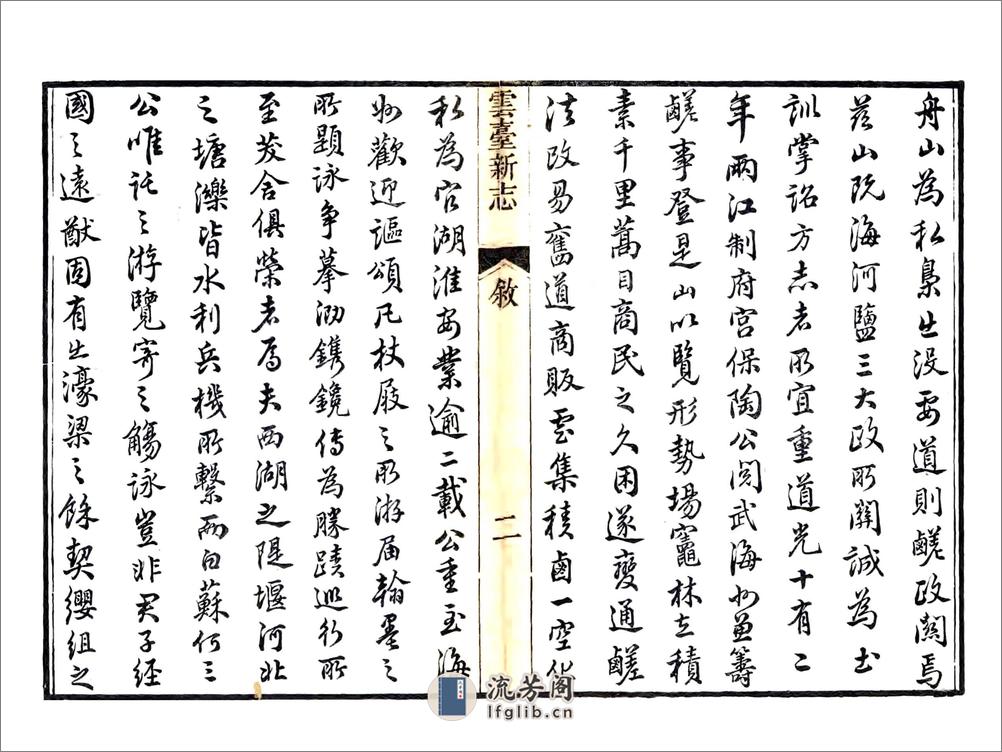 舟山為私梟出没要道則鹾政關焉
茲山阮海河鹽三大政所關誠為土
訓掌詔方志者所宜重道光十有二
年兩江制府宮保陶公閲武海州兼籌
鹾事登是山以覽形勢場竈林立積
素千里蒿目商民之久困遂變通鹾
法改易舊道商販雲集積鹵一空化
雲臺新志
敘
二
私為官湖淮安業逾二載公重至海
州歡迎謳頌凡杖屐之所游届翰墨之
所題詠争摹泐鐫鏡傳為勝蹟巡行所
至茇舍俱榮者焉夫西湖之隄堰河北
之塘濼皆水利兵機所繫而白蘇何三
公唯託之游覽寄之觴詠豈非君子經
國之遠猷固有出濠梁之餘契纓組之
流芳阁
lfglib.cn